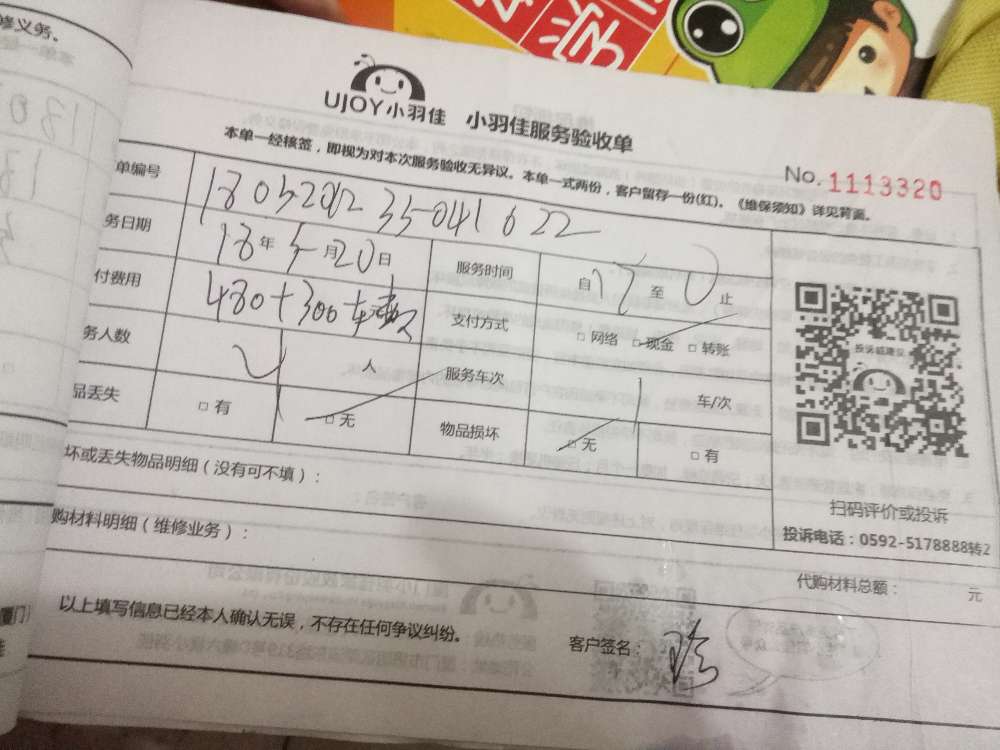 修义务。
UJOY小羽佳 小羽佳服务验收单
本单一经核签，即视为对本次服务验收无异议。本单一式两份，客户留存一份(红)。《维保须知》详见背面。
No. 1113320
单编号
务日期 18年5月20日 服务时间 自 至 止
付费用 480+300车费 支付方式 □网络 □现金 □转账
务人数 人 服务车次 1 车/次
品丢失 □有 □无 物品损坏 □无 □有
投诉或建议
扫码评价或投诉
投诉电话：0592-5178888转2
坏或丢失物品明细（没有可不填）：
购材料明细（维修业务）：
代购材料总额： 元
以上填写信息已经本人确认无误，不存在任何争议纠纷。
客户签名：
厦门